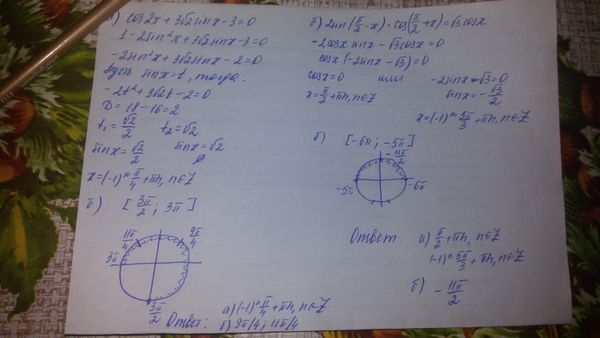 а) cos2x + 3√2 sinx - 3 = 0
1 - 2sin²x + 3√2 sinx - 3 = 0
-2sin²x + 3√2 sinx - 2 = 0
Пусть sinx = t, тогда:
-2t² + 3√2t - 2 = 0
D = 18 - 16 = 2
t₁ = √2/2 t₂ = √2
sinx = √2/2 sinx = √2
∅
x = (-1)ⁿ π/4 + πn, n∈Z
б) [3π/2; 3π]
11π/4 9π/4
3π
3π/2
Ответ: а) (-1)ⁿ π/4 + πn, n∈Z
б) 9π/4; 11π/4
б) 2sin(π/2 - x) · cos(π/2 + x) = √3 cosx
-2cosx sinx - √3 cosx = 0
cosx(-2sinx - √3) = 0
cosx = 0 или -2sinx - √3 = 0
x = π/2 + πn, n∈Z sinx = -√3/2
x = (-1)ⁿ 5π/3 + πn, n∈Z
б) [-6π; -5π]
-11π/2
-5π -6π
Ответ: а) π/2 + πn, n∈Z
(-1)ⁿ 5π/3 + πn, n∈Z
б) -11π/2